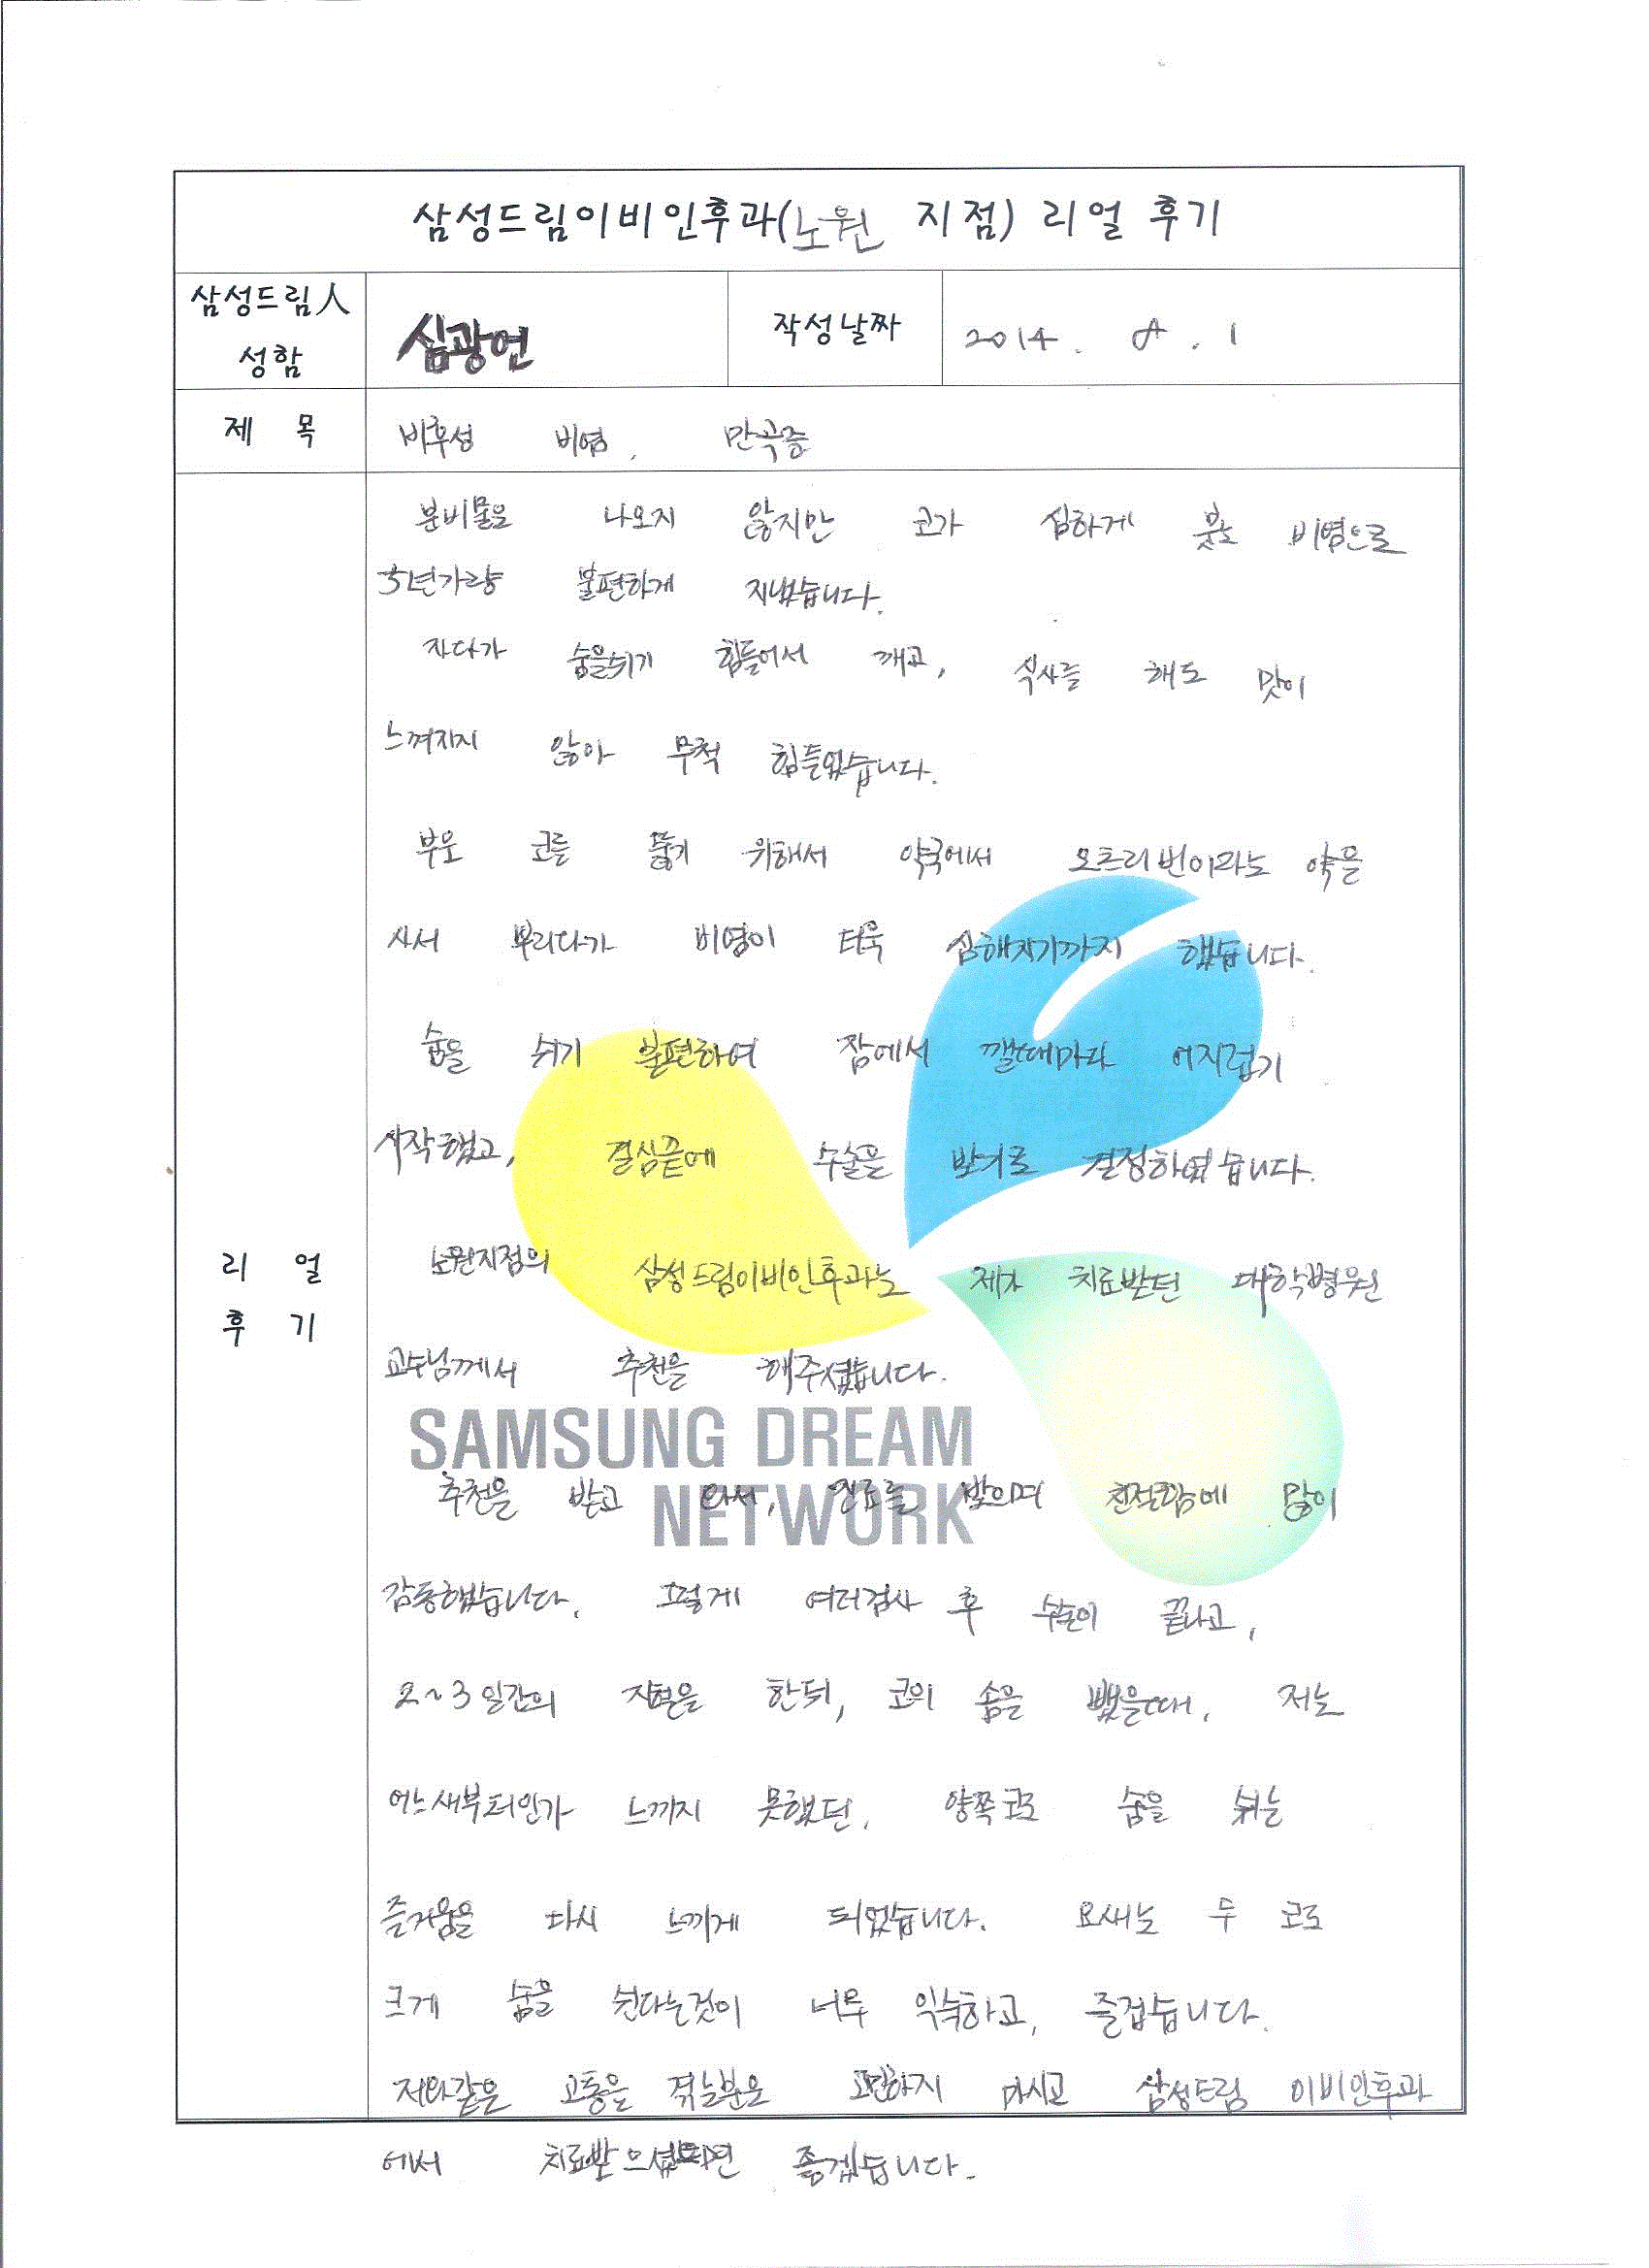 삼성드림이비인후과(노원 지점) 리얼 후기
삼성드림人 성함
심광연
작성날짜
2014. 8. 1
제 목
비후성 비염, 만곡증
리 얼 후 기
분비물은 나오지 않지만 코가 심하게 붓는 비염으로
5년가량 불편하게 지냈습니다.
자다가 숨을쉬기 힘들어서 깨고, 식사를 해도 맛이
느껴지지 않아 무척 힘들었습니다.
부은 코를 뚫기 위해서 약국에서 오트리빈이라는 약을
사서 뿌리다가 비염이 더욱 심해지기까지 했습니다.
숨을 쉬기 불편하여 잠에서 깰때마다 어지럽기
시작했고, 결심끝에 수술을 받기로 결정하였습니다.
노원지점의 삼성드림이비인후과는 제가 치료받던 대학병원
교수님께서 추천을 해주셨습니다.
SAMSUNG DREAM
NETWORK
추천을 받고 와서, 진료를 받으며 친절함에 많이
감동했습니다. 그렇게 여러검사 후 수술이 끝나고,
2~3일간의 지혈을 한뒤, 코의 솜을 뺐을때, 저는
어느새부터인가 느끼지 못했던, 양쪽코로 숨을 쉬는
즐거움을 다시 느끼게 되었습니다. 요새는 두 코로
크게 숨을 쉰다는것이 너무 익숙하고, 즐겁습니다.
저와같은 고통을 겪는분은 고민하지 마시고 삼성드림 이비인후과
에서 치료받으셨으면 좋겠습니다.